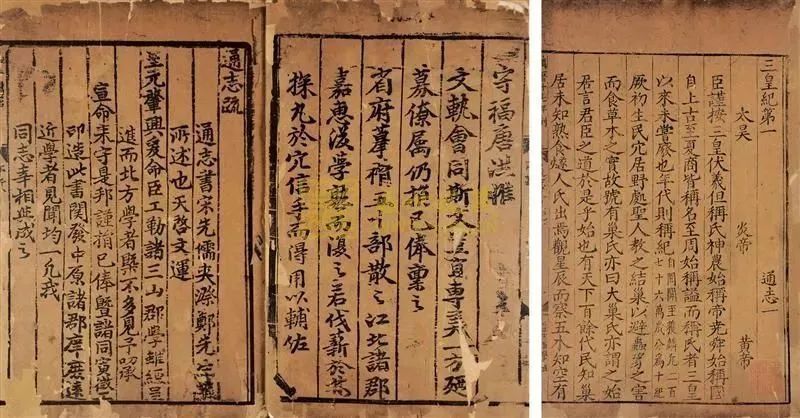 三皇紀第一
通志一
太昊
炎帝
黃帝
臣謹按三皇伏羲但稱氏神農始稱帝堯舜始稱國
自上古至夏商皆稱名至周始稱諡而稱氏者三皇
以來未嘗廢也年代則稱紀自開闢至獲麟凡二百七十六萬歲分為十紀
厥初生民穴居野處聖人教之結巢以避蟲豸之害
而食草木之實故號有巢氏亦曰大巢氏亦謂之始
君言君臣之道於是乎始也有天下百餘代民知巢
居未知熟食燧人氏出焉觀星辰而察五木知空有
守福唐洪惟
文軌會同斯文豈宜專美一方廼
募僚屬仍捐已俸稟之
省府摹褙五十部散之江北諸郡
嘉惠後學熟而復之若伐薪於
探丸於穴信手而得用以輔佐
通志疏
通志書宋先儒夾漈鄭先生
所述也天啓文運
聖元肇興爰命臣工勒諸三山郡學雖經呈
進而北方學者槩不多見予叨承
宣命來守是邦謹捐已俸暨諸同寅徵工
印造此書関發中原諸郡庠庶遠
近學者見聞均一允我
同志幸相與成之